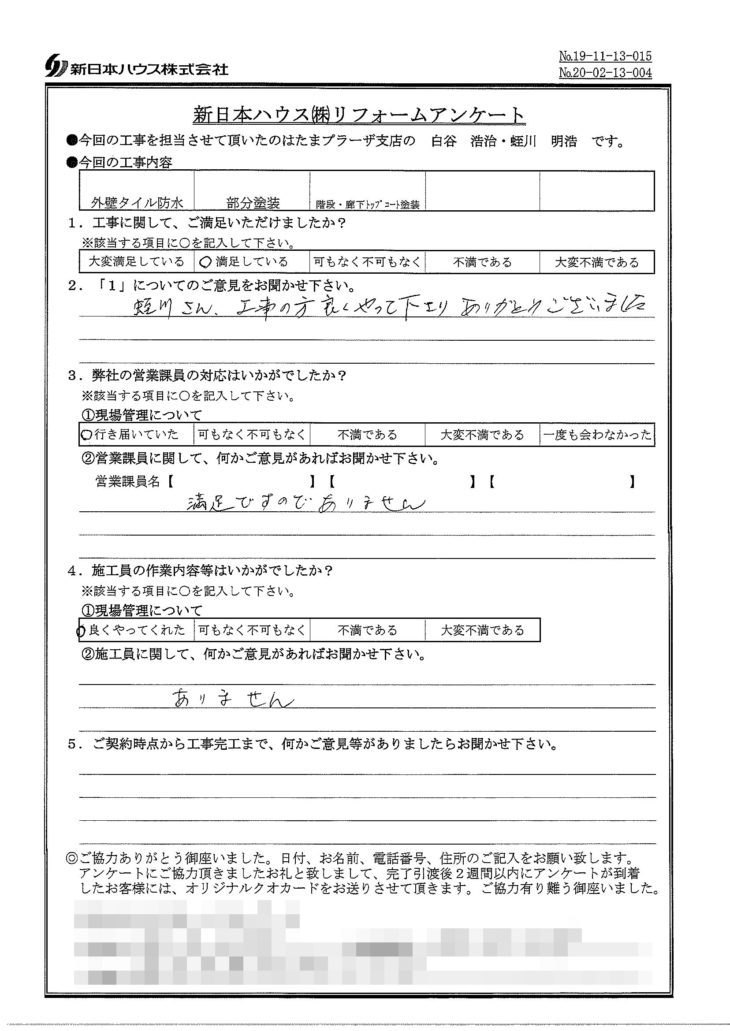 新日本ハウス株式会社
No.19-11-13-015
No.20-02-13-004
新日本ハウス㈱リフォームアンケート
●今回の工事を担当させて頂いたのはたまプラーザ支店の 白谷 浩治・蛭川 明浩 です。
●今回の工事内容
外壁タイル防水 部分塗装 階段・廊下トップコート塗装
1．工事に関して、ご満足いただけましたか？
※該当する項目に○を記入して下さい。
大変満足している ○満足している 可もなく不可もなく 不満である 大変不満である
2．「1」についてのご意見をお聞かせ下さい。
蛭川さん、工事の方良くやって下さり ありがとうございました
3．弊社の営業課員の対応はいかがでしたか？
※該当する項目に○を記入して下さい。
①現場管理について
○行き届いていた 可もなく不可もなく 不満である 大変不満である 一度も会わなかった
②営業課員に関して、何かご意見があればお聞かせ下さい。
営業課員名【 】【 】【 】
満足ですのでありません
4．施工員の作業内容等はいかがでしたか？
※該当する項目に○を記入して下さい。
①現場管理について
○良くやってくれた 可もなく不可もなく 不満である 大変不満である
②施工員に関して、何かご意見があればお聞かせ下さい。
ありません
5．ご契約時点から工事完工まで、何かご意見等がありましたらお聞かせ下さい。
◎ご協力ありがとう御座いました。日付、お名前、電話番号、住所のご記入をお願い致します。
アンケートにご協力頂きましたお礼と致しまして、完了引渡後2週間以内にアンケートが到着
したお客様には、オリジナルクオカードをお送りさせて頂きます。ご協力有り難う御座いました。